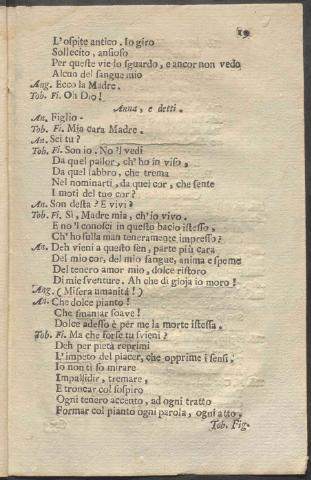 19
L'ospite antico. Io giro
Sollecito, ansioso
Per queste vie lo sguardo, e ancor non vedo
Alcun del sangue mio
Ang. Ecco la Madre.
Tob. Fi. Oh Dio!
Anna, e detti.
An. Figlio-
Tob. Fi. Mia cara Madre.
An. Sei tu?
Tob. Fi. Son io. No'l vedi
Da quel pallor, ch'ho in viso,
Da quel labbro, che trema
Nel nominarti, da quel cor, che sente
I moti del tuo cor?
An. Son desta? E vivi?
Tob. Fi. Sì, Madre mia, ch'io vivo.
E no'l conosci in questo bacio istesso,
Ch'ho sulla man teneramente impresso?
An. Deh vieni a questo sen, parte più cara
Del mio cor, del mio sangue, anima e speme
Del tenero amor mio, dolce ristoro
Di mie sventure. Ah che di gioja io moro!
Ang. (Misera umanità!)
An. Che dolce pianto!
Che smaniar soave!
Dolce adesso è per me la morte istessa.
Tob. Fi. Ma che forse tu svieni?
Deh per pietà reprimi
L'impeto del piacer, che opprime i sensi.
Io non ti so mirare
Impallidir, tremare,
E troncar col sospiro
Ogni tenero accento, ad ogni tratto
Formar col pianto ogni parola, ogni atto.
Tob. Fig.